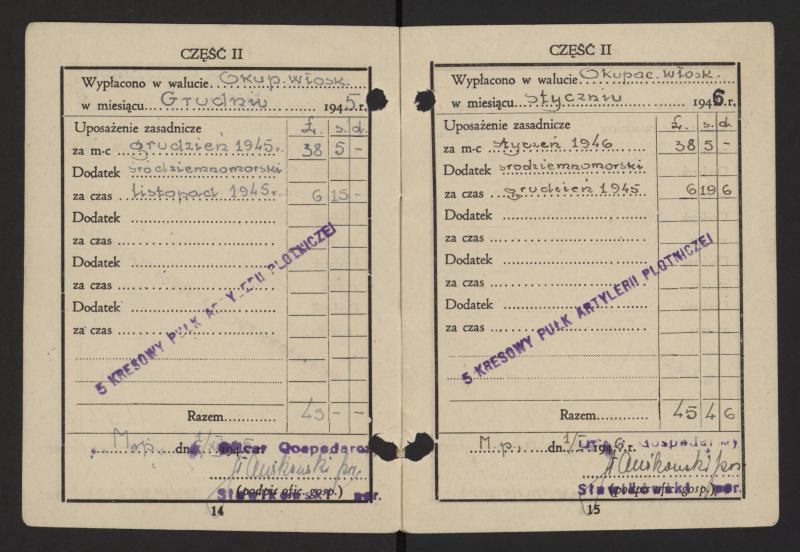 CZĘŚĆ II
Wypłacono w walucie Okup. włosk.
w miesiącu Grudniu 1945.r.
Uposażenie zasadnicze £. s. d.
za m-c grudzień 1945r. 38 5 -
Dodatek śródziemnomorski
za czas listopad 1945r. 6 15 -
Dodatek
za czas
Dodatek
za czas
Dodatek
za czas
5 KRESOWY PUŁK ARTYLERII PLOTNICZEJ
Razem 45 - -
M.p., dn. 1/XII 1945
Oficer Gospodarczy
Sławikowski por.
(podpis ofic. gosp.)
14
CZĘŚĆ II
Wypłacono w walucie Okupac. włosk.
w miesiącu Styczniu 1946.r.
Uposażenie zasadnicze £. s. d.
za m-c styczeń 1946 38 5 -
Dodatek srodziemnomorski
za czas grudzień 1945 6 19 6
Dodatek
za czas
Dodatek
za czas
Dodatek
za czas
5 KRESOWY PUŁK ARTYLERII PLOTNICZEJ
Razem 45 4 6
M.p., dn. 1/I 1946.r.
Gospodarczy
Sławikowski por.
(podpis ofic. gosp.)
15